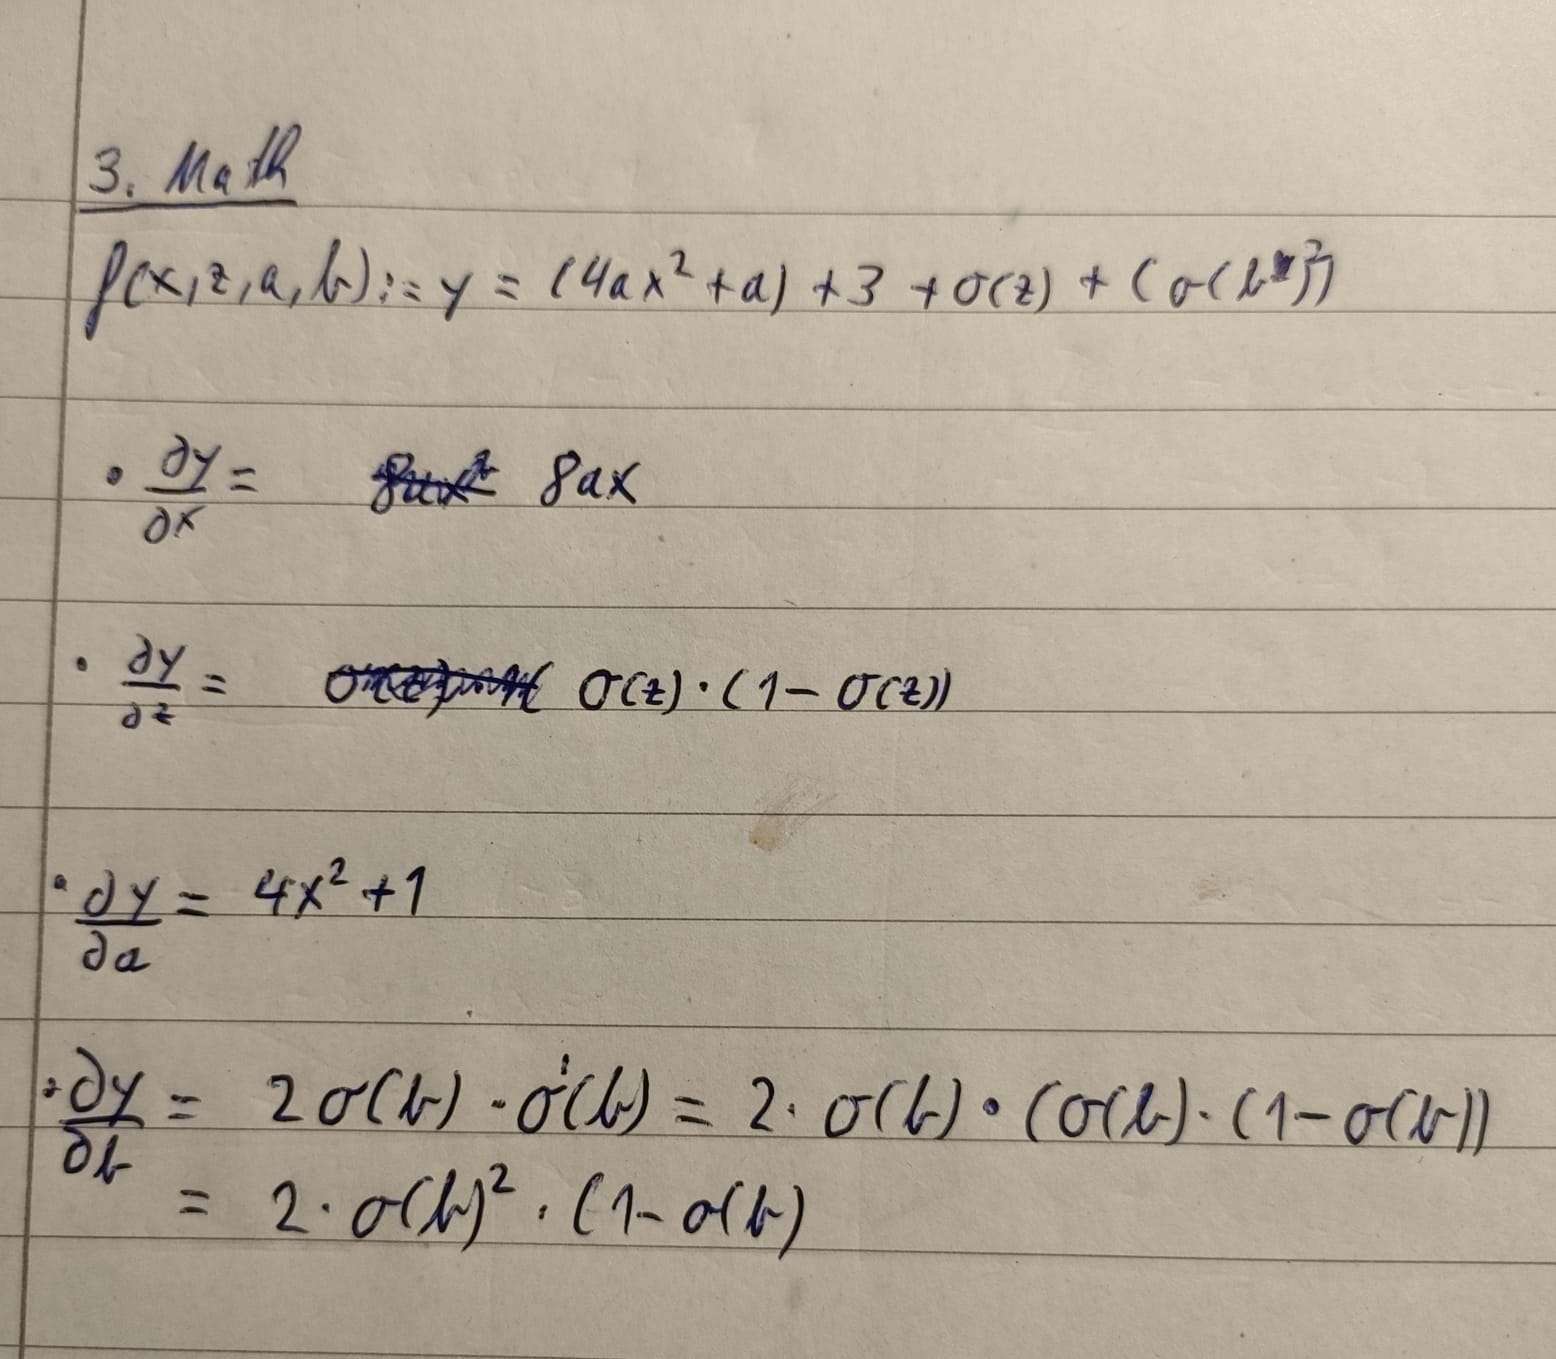 3. Math
f(x,z,a,b) := y = (4ax² + a) + 3 + σ(z) + (σ(b))²
• ∂y/∂x = 8ax
• ∂y/∂z = σ(z) · (1 - σ(z))
• ∂y/∂a = 4x² + 1
• ∂y/∂b = 2σ(b) · σ'(b) = 2 · σ(b) · (σ(b) · (1 - σ(b))
= 2 · σ(b)² · (1 - σ(b)